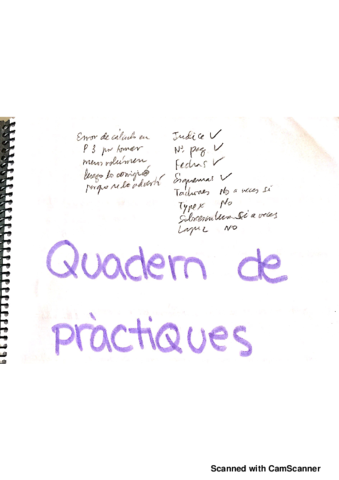 Error de cálculo en
P3 por tomar
menos volumen
luego lo corrigió
porque se lo advertí
Indice ✓
Nº pag ✓
Fechas ✓
Esquemas ✓
Tachones No a veces si
Typex No
Subrrayados Si a veces
Lapiz NO
Quadern de
pràctiques
Scanned with CamScanner